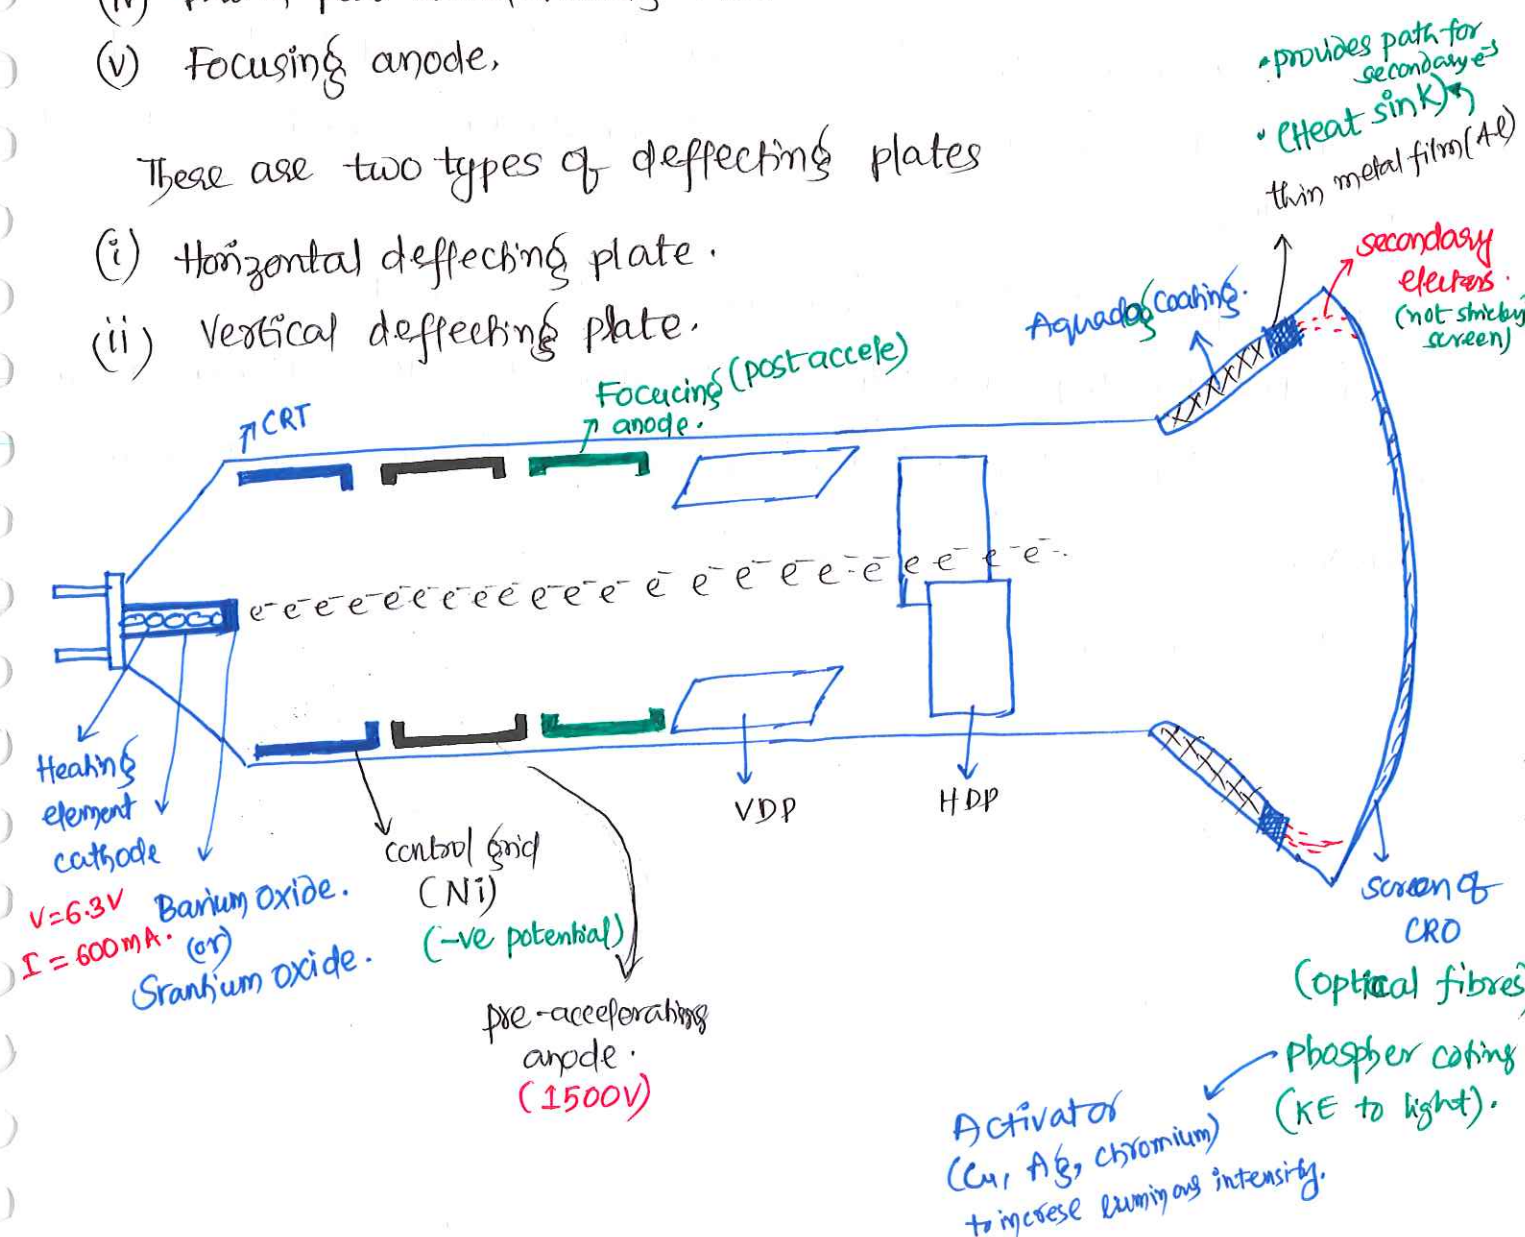 (v) Focusing anode.
There are two types of deffecting plates
(i) Horizontal deffecting plate.
(ii) Vertical deffecting plate.
• provides path for
secondary e⁻s
• (Heat sink)
thin metal film (Al)
secondary
electrons.
(not stricking
screen)
Aquadag coating.
Focucing (post accele)
anode.
CRT
e⁻ e⁻ e⁻ e⁻ e⁻ e⁻ e⁻ e⁻ e e⁻ e⁻ e⁻ e⁻ e⁻ e⁻ e⁻ e⁻ e⁻ e e⁻ e⁻ e⁻
Heating
element
cathode
V=6.3V
I = 600mA.
Barium oxide.
(or)
Srantium oxide.
control grid
(Ni)
(-ve potential)
pre-accelerating
anode.
(1500V)
VDP
HDP
screen of
CRO
(optical fibres)
Phospher coting
(KE to light).
Activator
(Cu, Ag, chromium)
to increse luminous intensity.